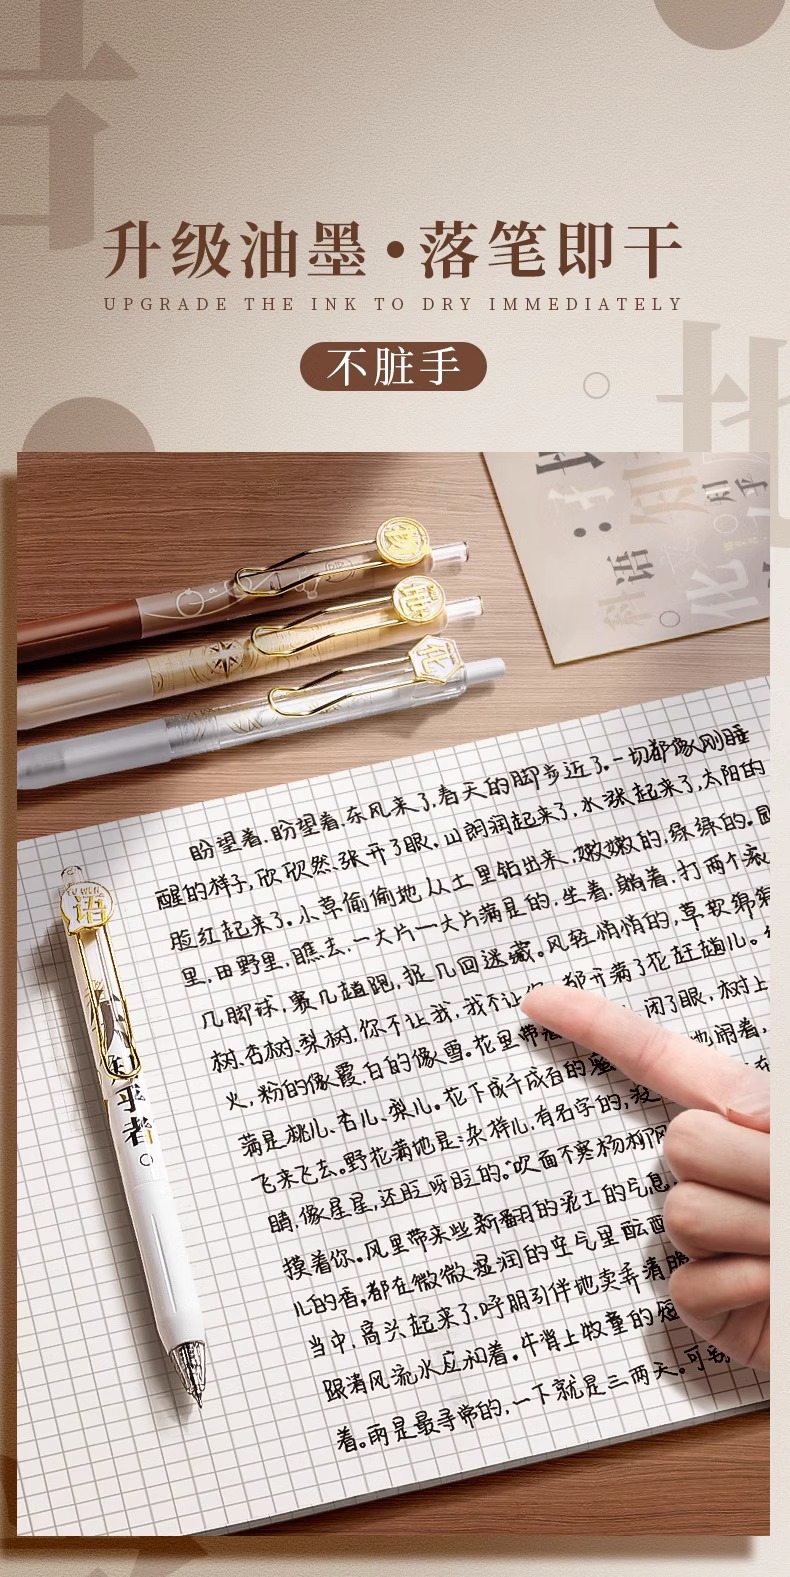 升级油墨·落笔即干
UPGRADE THE INK TO DRY IMMEDIATELY
不脏手
物
地
化
科语
知乎
化
YU WEN
语
乎者
盼望着,盼望着,东风来了,春天的脚步近了。一切都像刚睡
醒的样子,欣欣然张开了眼。山朗润起来了,水涨起来了,太阳的
脸红起来了。小草偷偷地从土里钻出来,嫩嫩的,绿绿的。园
里,田野里,瞧去,一大片一大片满是的。坐着,躺着,打两个滚
几脚球,赛几趟跑,捉几回迷藏。风轻悄悄的,草软绵绵
树、杏树、梨树,你不让我,我不让你,都开满了花赶趟儿。
火,粉的像霞,白的像雪。花里带着 闭了眼,树上
满是桃儿、杏儿、梨儿。花下成千成百的蜜 地闹着,
飞来飞去。野花满地是:杂样儿,有名字的,没
睛,像星星,还眨呀眨的。“吹面不寒杨柳风
摸着你。风里带来些新翻的泥土的气息,
儿的香,都在微微湿润的空气里酝酿
当中,高兴起来了,呼朋引伴地卖弄清脆
跟清风流水应和着。牛背上牧童的短
着。雨是最寻常的,一下就是三两天。可